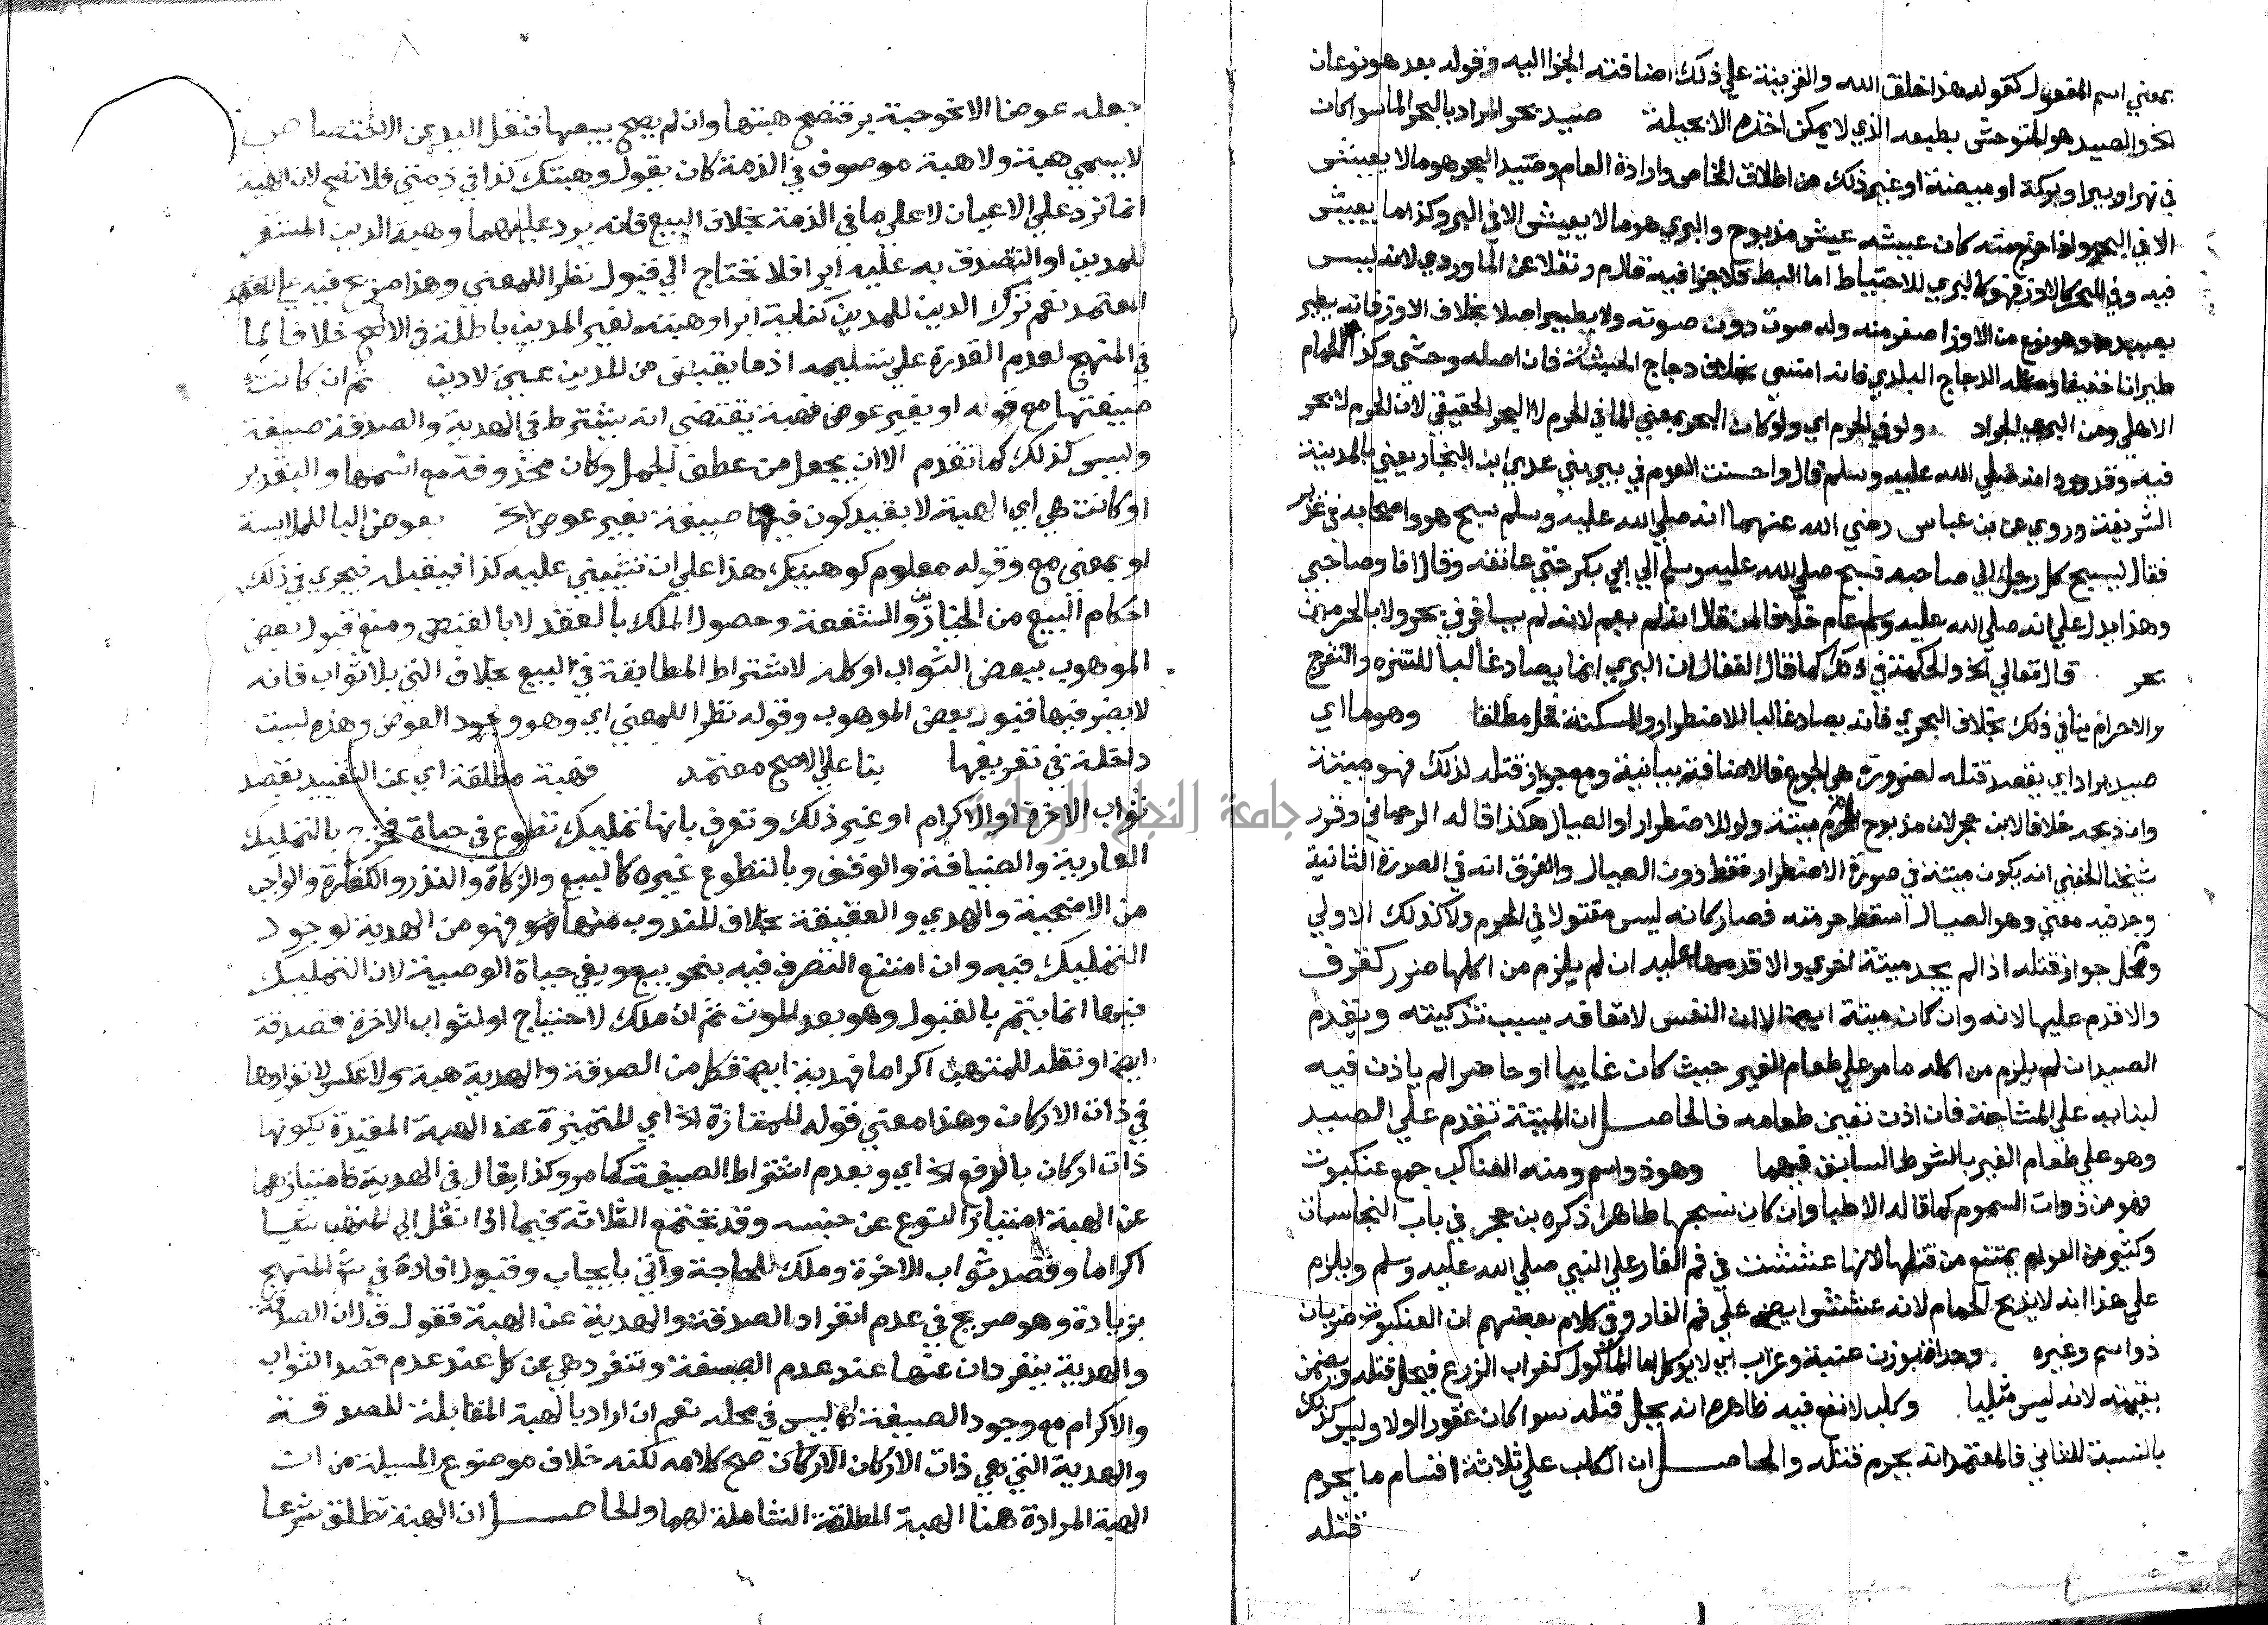 بمعني اسم المفعول كقوله هذا خلق الله والقرينة علي ذلك اضافته الجزا اليه وقوله بعد هو نوعان
الخ والصيد هو المتوحش بطبعه الذي لا يمكن اخذه الا بحيلة صيد بحر المراد بالبحر الما سوا كان
في نهر او بير او بركة او ميضئة او غير ذلك من اطلاق الخاص وارادة العام وصيد البحر هو ما لا يعيش
الا في البحر واذا خرج منه كان عيشه عيش مذبوح والبري هو ما لا يعيش الا في البر وكذا ما يعيش
فيه وفي البحر كالاوز فهو كالبري للاحتياط اما البط فلا جزا فيه قال م ر نقلا عن الماوردي لانه ليس
بصيد وهو نوع من الاوز اصغر منه وله صوت دون صوته ولا يطير اصلا بخلاف الاوز فانه يطير
طيرانا خفيفا ومثله الدجاج البلدي فانه انسي بخلاف دجاج الحبشة فان اصله وحشي وكذا الحمام
الاهلي ومن البري الجراد ولو في الحرم اي ولو كان البحر بمعني الما في الحرم لا البحر الحقيقي لان الحرم لا بحر
فيه وقد ورد انه صلي الله عليه وسلم قال واحسنت العوم في بير بني عدي ابن النجار يعني بالمدينة
الشريفة وروي عن بن عباس رضي الله عنهما انه صلي الله عليه وسلم سبح هو واصحابه في غدير
فقال ليسبح كل رجل الي صاحبه فسبح صلي الله عليه وسلم الي ابي بكر حتي عانقه وقال انا وصاحبي
وهذا يدل علي انه صلي الله عليه وسلم عام خلافا لمن قال انه لم يعم لانه لم يسافر في بحر ولا بالحرمين
بحر قال تعالي الخ والحكمة في ذلك كما قال القفال ان البري انما يصاد غالبا للتنزه والتفرج
والاحرام ينافي ذلك بخلاف البحري فانه يصاد غالبا للاضطرار والمسكنة فحل مطلقا وهو ما اي
صيد يراد اي يقصد قتله لضرورة هي الجوع فالاضافة بيانية ومع جواز قتله لذلك فهو ميتة
وان ذبحه خلافا لابن حجر لان مذبوح المحرم ميتة ولو للاضطرار او الصيال هكذا قاله الرحماني وقرر
شيخنا الحفني انه يكون ميتة في صورة الاضطرار فقط دون الصيال والفرق انه في الصورة الثانية
وجد فيه معني وهو الصيال اسقط حرمته فصار كانه ليس مقتولا في الحرم ولا كذلك الاولي
ومحل جواز قتله اذا لم يجد ميتة اخري والا قدمها عليه ان لم يلزم من اكلها ضرر كقروف
والا قدم عليها لانه وان كان ميتة ايضا الا ان النفس لا تعافه بسبب تذكيته ويقدم
الصيد ان لم يلزم من اكله ما مر علي طعام الغير حيث كان غايبا او حاضرا لم ياذن فيه
لبنايه علي المشاحة فان اذن تعين طعامه فالحاصل ان الميتة تقدم علي الصيد
وهو علي طعام الغير بالشرط السابق فيهما وهو ذو اسم ومنه العناكب جمع عنكبوت
فهو من ذوات السموم كما قاله الاطبا وان كان نسجها طاهرا ذكره بن حجر في باب النجاسات
وكثير من العوام يمتنع من قتلها لانها عششت في فم الغار علي النبي صلي الله عليه وسلم ويلزم
علي هذا انه لا يذبح الحمام لانه عشش ايضا علي فم الغار وفي كلام بعضهم ان العنكبوت ضربان
ذو اسم وغيره وحداة بوزن عنبة وغراب اي لا يوكل اما الماكول كغراب الزرع فيحل قتله ويضمن
بقيمته لانه ليس مثليا وكلب لا نفع فيه ظاهره انه يحل قتله سوا كان عقورا اولا وليس كذلك
بالنسبة للثاني فالمعتمد انه يحرم قتله والحاصل ان الكلب علي ثلاثة اقسام ما يحرم
قتله
جعله عوضا الا نحو حبة بر فتصح هبتها وان لم يصح بيعها فنقل اليد عن الاختصاص
لا يسمي هبة ولا هبة موصوف في الذمة كان يقول وهبتك كذا في ذمتي فلا تصح لان الهبة
انما ترد علي الاعيان لا علي ما في الذمة بخلاف البيع فانه يرد عليهما وهبة الدين المستقر
للمدين او التصدق به عليه ابرا فلا تحتاج الي قبول نظرا للمعني وهذا صريح فيه علي
المعتمد نعم ترك الدين للمدين كناية ابرا وهبته لغير المدين باطلة في الاصح خلافا لما
في المنهج لعدم القدرة علي تسليمه اذ ما يقبض من المدين عين لا دين ثم ان كانت
صيغتها مع قوله او بغير عوض فهبة يقتضي انه يشترط في الهدية والصدقة صيغة
وليس كذلك كما تقدم الا ان يجعل من عطف الجمل وكان محذوفة مع اسمها والتقدير
او كانت هي اي الهبة لا بقيد كون فيها صيغة بغير عوض الخ بعوض البا للملابسة
او بمعني مع وقوله معلوم كوهبتك هذا علي ان تثيبني عليه كذا فيقبله فيجري في ذلك
احكام البيع من الخيار والشفعة وحصول الملك بالعقد لا بالقبض ومنع قبول بعض
الموهوب ببعض الثواب او كله لاشتراط المطابقة في البيع بخلاف التي بلا ثواب فانه
لا يضر فيها قبول بعض الموهوب وقوله نظرا للمعني اي وهو وجود العوض وهذه ليست
داخلة في تعريفها بنا علي الاصح معتمد فهبة مطلقة اي عن التقييد بقصد
ثواب الاخرة او الاكرام او غير ذلك وتعرف بانها تمليك تطوع في حياة فخرج بالتمليك
العارية والضيافة والوقف وبالتطوع غيره كالبيع والزكاة والنذر والكفارة والواجب
من الاضحية والهدي والعقيقة بخلاف المندوب منها فهو من الهدية لوجود
التمليك فيه وان امتنع التصرف فيه بنحو بيع وبفي حياة الوصية لان التمليك
فيها انما يتم بالقبول وهو بعد الموت ثم ان ملك لاحتياج او لثواب الاخرة فصدقة
ايضا او نقله للمتهب اكراما فهدية ايضا فكل من الصدقة والهدية هبة ولا عكس لانفرادها
في ذات الاركان وهذا معني قوله الممتازة الخ اي المتميزة عند الهبة المقيدة بكونها
ذات اركان بالرفع الخ اي وبعدم اشتراط الصيغة كما مر وكذا يقال في الهدية فامتيازهما
عن الهبة امتياز النوع عن جنسه وقد تجتمع الثلاثة فيما اذا نقل الي المتهب شيا
اكراما وقصد ثواب الاخرة وملك للحاجة واتي بايجاب وقبول افاده في ش المنهج
بزيادة وهو صريح في عدم انفراد الصدقة والهدية عن الهبة فقول ق ل ان الصدقة
والهدية ينفردان عنها عند عدم الصيغة وتنفرد هي عن كل عند عدم قصد الثواب
والاكرام مع وجود الصيغة اه ليس في محله نعم ان اراد بالهبة المقابلة للصدقة
والهدية التي هي ذات الاركان الاركان صح كلامه لكنه خلاف موضوع المسيلة من ان
الهبة المرادة هنا الهبة المطلقة الشاملة لهما والحاصل ان الهبة تطلق شرعا
جامعة النجاح الوطنية